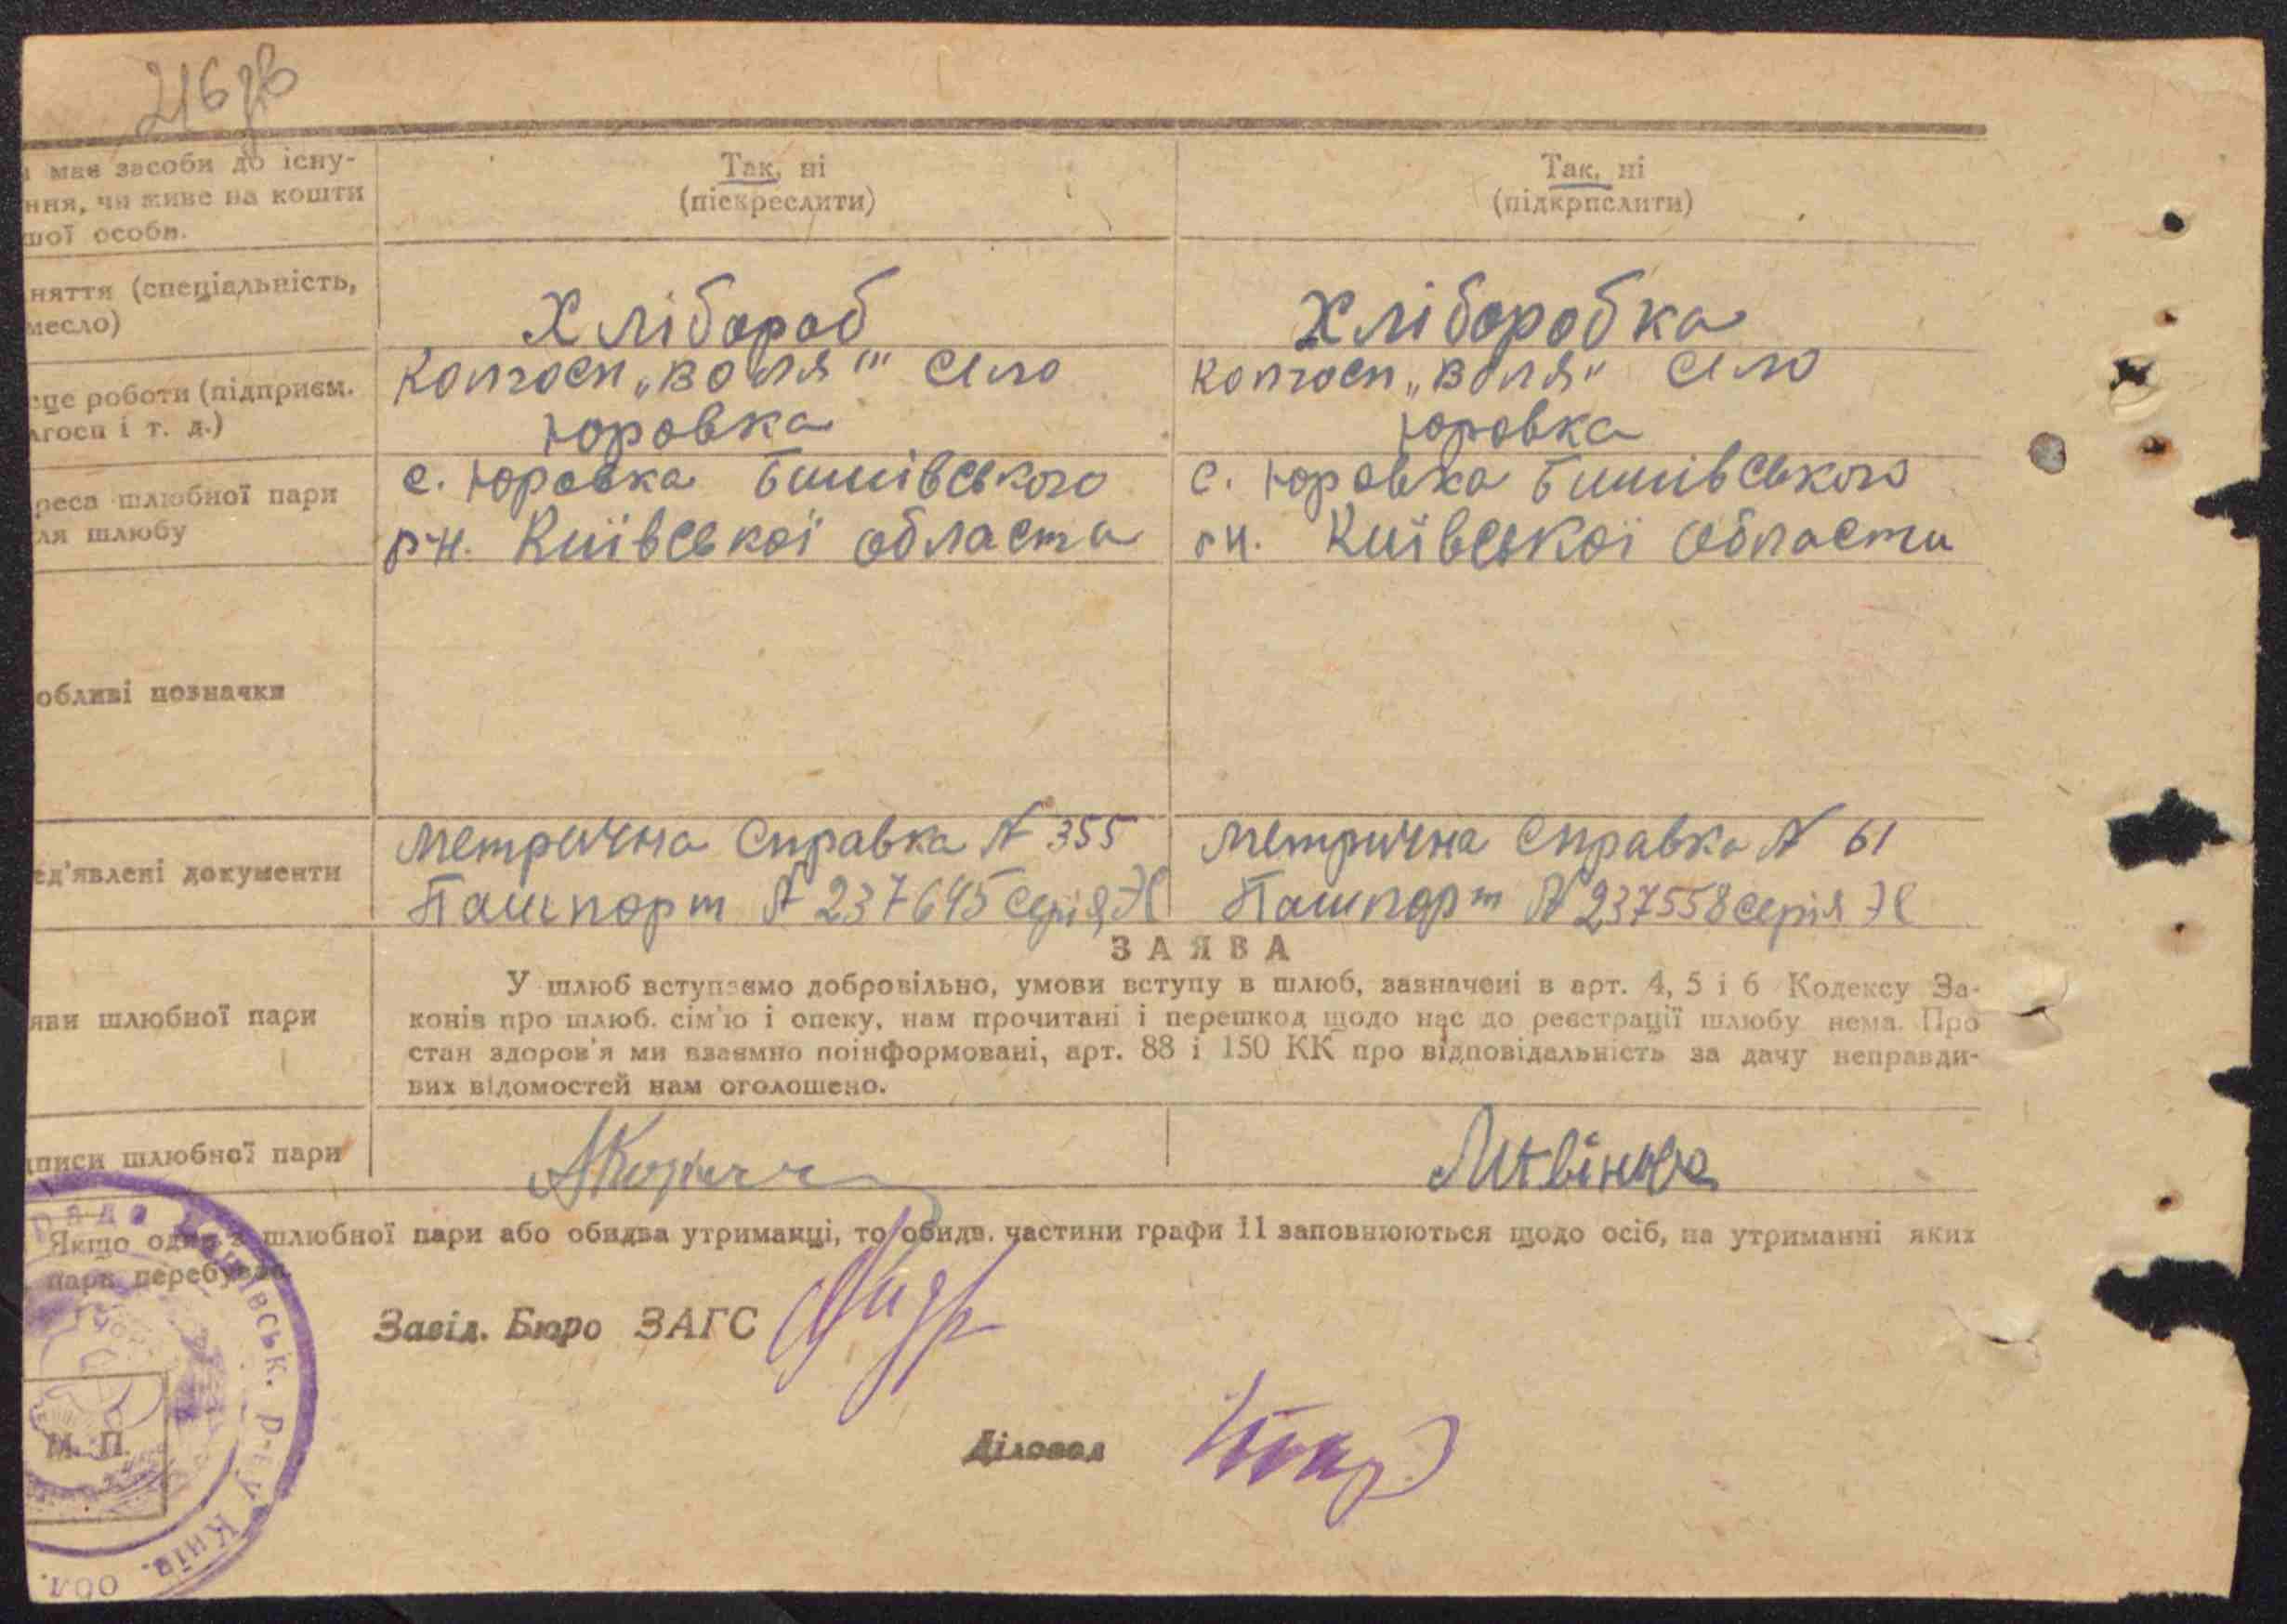 216 зв
має засоби до існу-
ння, чи живе на кошти
шої особи.
Так, ні
(піскреслити)
Так, ні
(підкрпслити)
няття (спеціяльність,
месло)
Хлібороб
Хліборобка
сце роботи (підприєм.
лгосп і т. д.)
Колгосп „Воля" село
Юровка
Колгосп „Воля" село
Юровка
реса шлюбної пари
ля шлюбу
с. Юровка Бишівського
рн. Київської области
с. Юровка Бишівського
рн. Київської области
обливі позначки
ед'явлені документи
Метрична Справка № 355
Пашпорт № 237645 серія ЭС
Метрична Справка № 61
Пашпорт № 237558 серія ЭС
ЗАЯВА
яви шлюбної пари
У шлюб вступаємо добровільно, умови вступу в шлюб, зазначені в арт. 4, 5 і 6 Кодексу За-
конів про шлюб. сім'ю і опеку, нам прочитані і перешкод щодо нас до реєстрації шлюбу нема. Про
стан здоров'я ми взаємно поінформовані, арт. 88 і 150 КК про відповідальність за дачу неправди-
вих відомостей нам оголошено.
дписи шлюбної пари
Литвінова
Якщо один з шлюбної пари або обидва утриманці, то обидв. частини графи 11 заповнюються щодо осіб, на утриманні яких
пара перебуває
Завід. Бюро ЗАГС
Діловод
М. П.
рада
івськ. р-ну Київ. обл.